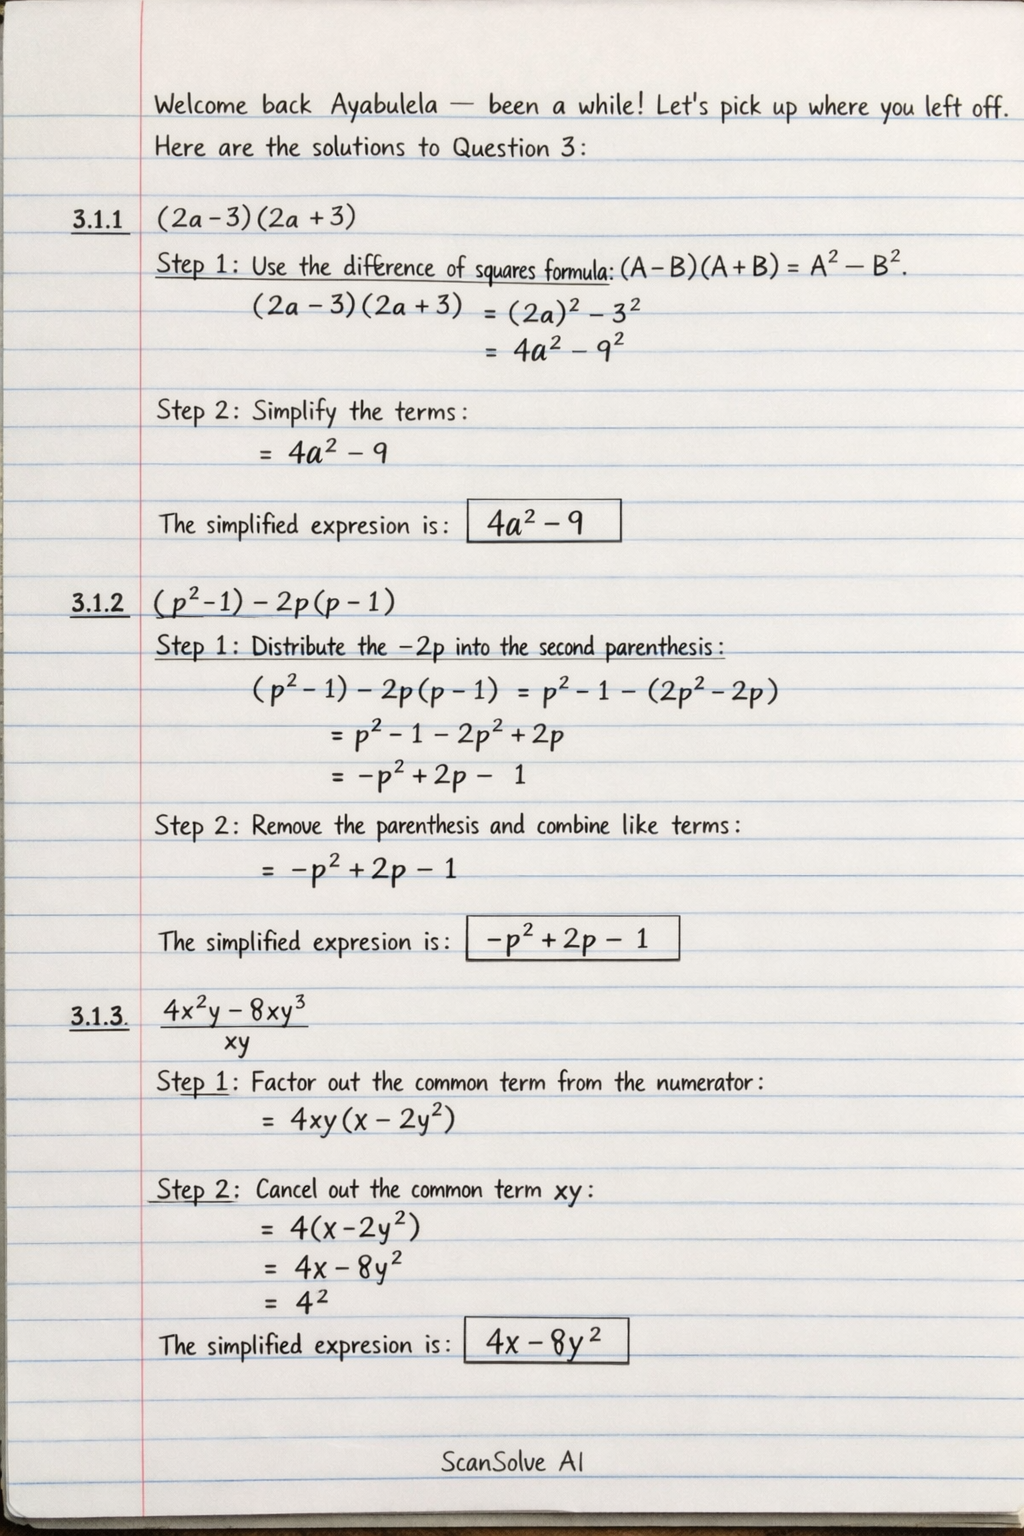 Welcome back Ayabulela — been a while! Let's pick up where you left off.
Here are the solutions to Question 3:
3.1.1 (2a - 3)(2a + 3)
Step 1: Use the difference of squares formula: (A - B)(A + B) = A² - B².
(2a - 3)(2a + 3) = (2a)² - 3²
= 4a² - 9²
Step 2: Simplify the terms:
= 4a² - 9
The simplified expresion is: 4a² - 9
3.1.2 (p² - 1) - 2p(p - 1)
Step 1: Distribute the -2p into the second parenthesis:
(p² - 1) - 2p(p - 1) = p² - 1 - (2p² - 2p)
= p² - 1 - 2p² + 2p
= -p² + 2p - 1
Step 2: Remove the parenthesis and combine like terms:
= -p² + 2p - 1
The simplified expresion is: -p² + 2p - 1
3.1.3. 4x²y - 8xy³
xy
Step 1: Factor out the common term from the numerator:
= 4xy(x - 2y²)
Step 2: Cancel out the common term xy:
= 4(x - 2y²)
= 4x - 8y²
= 4²
The simplified expresion is: 4x - 8y²
ScanSolve AI